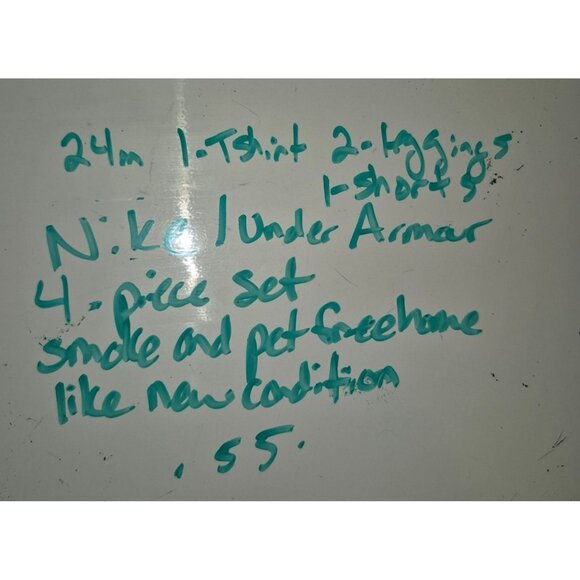 24m 1-Tshirt 2-leggings
1-shorts
Nike / Under Armour
4-piece set
smoke and pet free home
like new condition
.55.